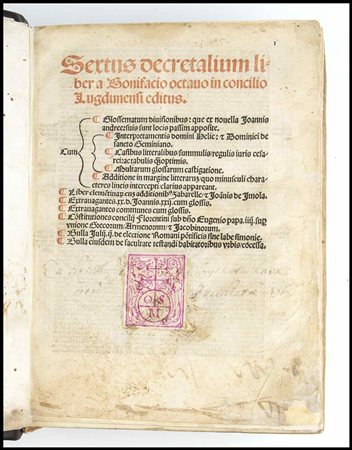 Sextus decretalium li
ber a Bonifacio octauo in concilio
Lugdunensi editus.
Cum
¶ Glossematum diuisionibus: que ex nouella Joannis
andree suis sunt locis passim apposite.
¶ Interpretamentis domini Helie: ⁊ Dominici de
sancto Geminiano.
¶ Casibus litteralibus summulis regulis iuris cesa-
rei: ac tabulis optimis.
¶ Multarum glossarum castigatione.
¶ Additione in margine litterarum quo minusculi chara-
cteres lineis intercepti clarius appareant.
¶ Liber clementinarum cum additionibus Zabarelle: ⁊ Joãnis de Imola.
¶ Extrauagantes xx. d. Joannis xxij. cum glossis.
¶ Extrauagantes communes cum glossis.
¶ Cõstitutiones concilij Florentini sub dño Eugenio papa. iiij. super
vnione Grecorum Armenorum ⁊ Jacobinorum.
¶ Bulla Julij. ij. de electione Romani põtificis sine labe simonie.
¶ Bulla eiusdem de facultate testandi habitatoribus vrbis cõcessa.